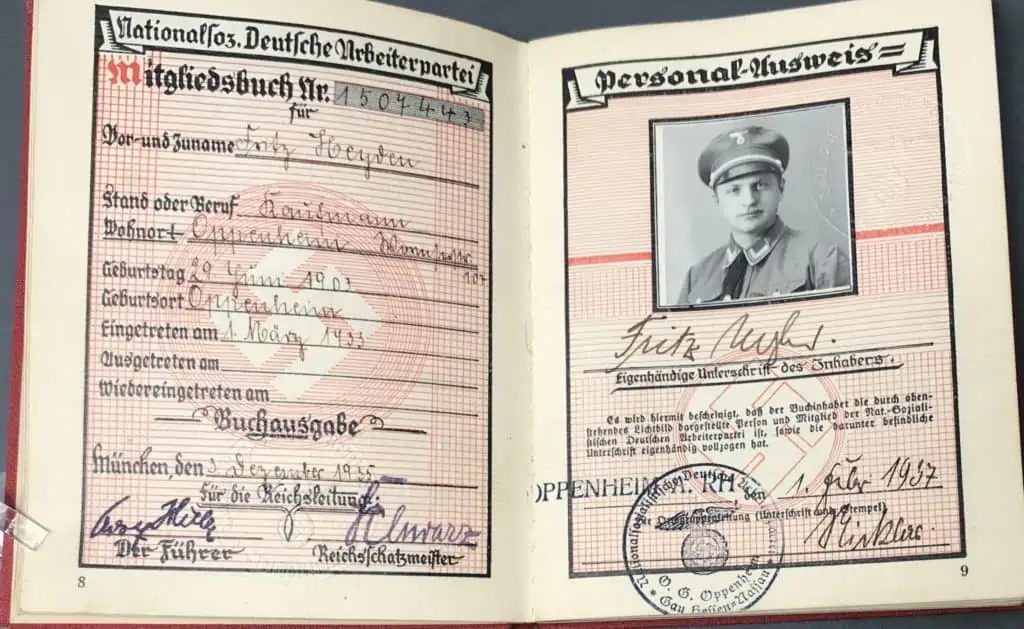 Nationalsoz. Deutsche Arbeiterpartei
Mitgliedsbuch Nr. 1507443
für
Vor- und Zuname Fritz Heyden
Stand oder Beruf Kaufmann
Wohnort Oppenheim Wormserstr.
107
Geburtstag 29 Juni 1903
Geburtsort Oppenheim
Eingetreten am 1. März 1933
Ausgetreten am
Wiedereingetreten am
Buchausgabe
München, den 3 Dezember 1935
Für die Reichsleitung:
Der Führer Reichsschatzmeister
8
Personal-Ausweis
Fritz
Eigenhändige Unterschrift des Inhabers.
Es wird hiermit bescheinigt, daß der Buchinhaber die durch oben-
stehendes Lichtbild dargestellte Person und Mitglied der Nat.-Soziali-
stischen Deutschen Arbeiterpartei ist, sowie die darunter befindliche
Unterschrift eigenhändig vollzogen hat.
OPPENHEIM A. RH. den 1. 1937
(Unterschrift und Stempel)
Nationalsozialistische Deutsche
O. G. Oppenheim
Gau Hessen-Nassau
9